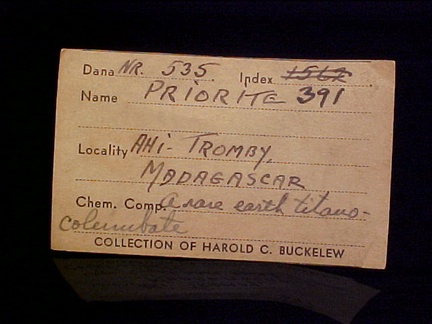 Dana NR. 535. Index 1562
Name PRIORITE 391
Locality AHI-TROMBY,
MADAGASCAR
Chem. Comp. a rare earth titano-
columbate
COLLECTION OF HAROLD C. BUCKELEW